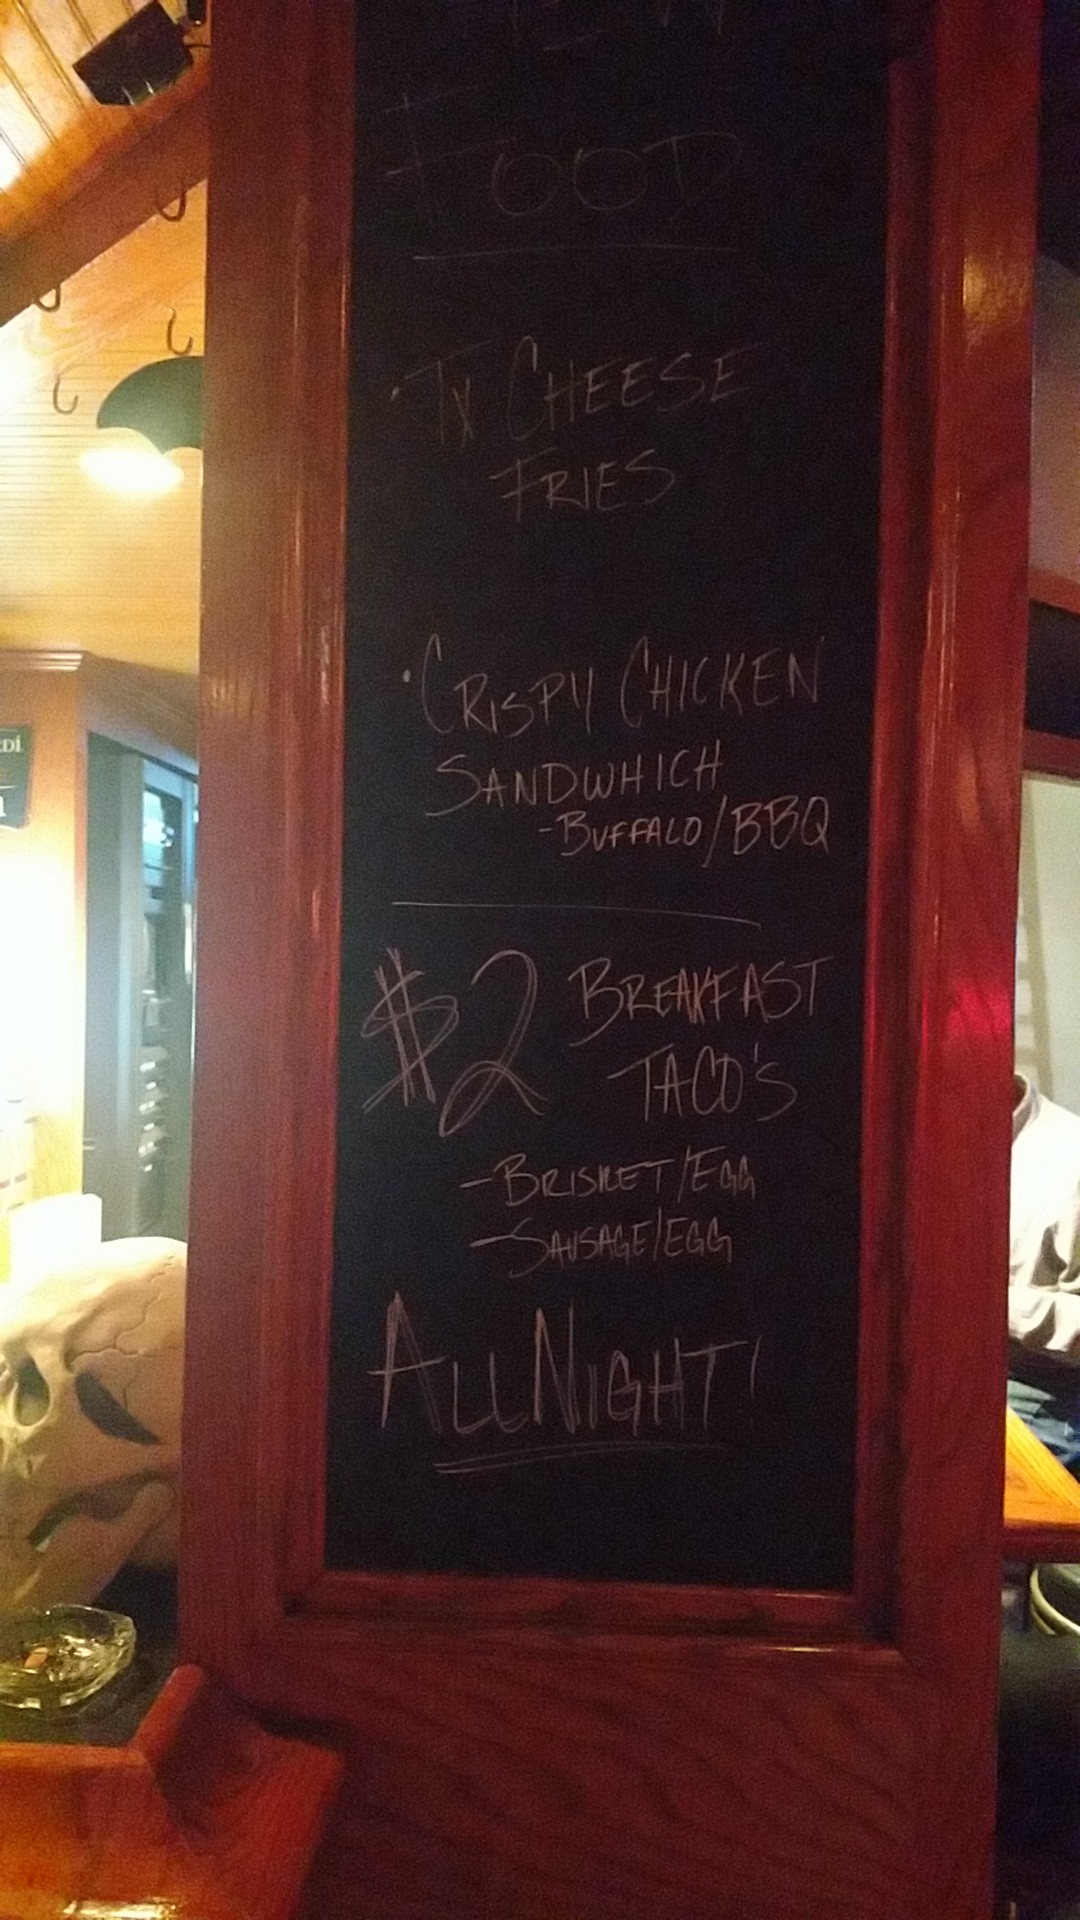 FOOD
·TX CHEESE
FRIES
·CRISPY CHICKEN
SANDWHICH
-BUFFALO/BBQ
$2 BREAKFAST
TACO'S
-BRISKET/EGG
-SAUSAGE/EGG
ALL NIGHT!